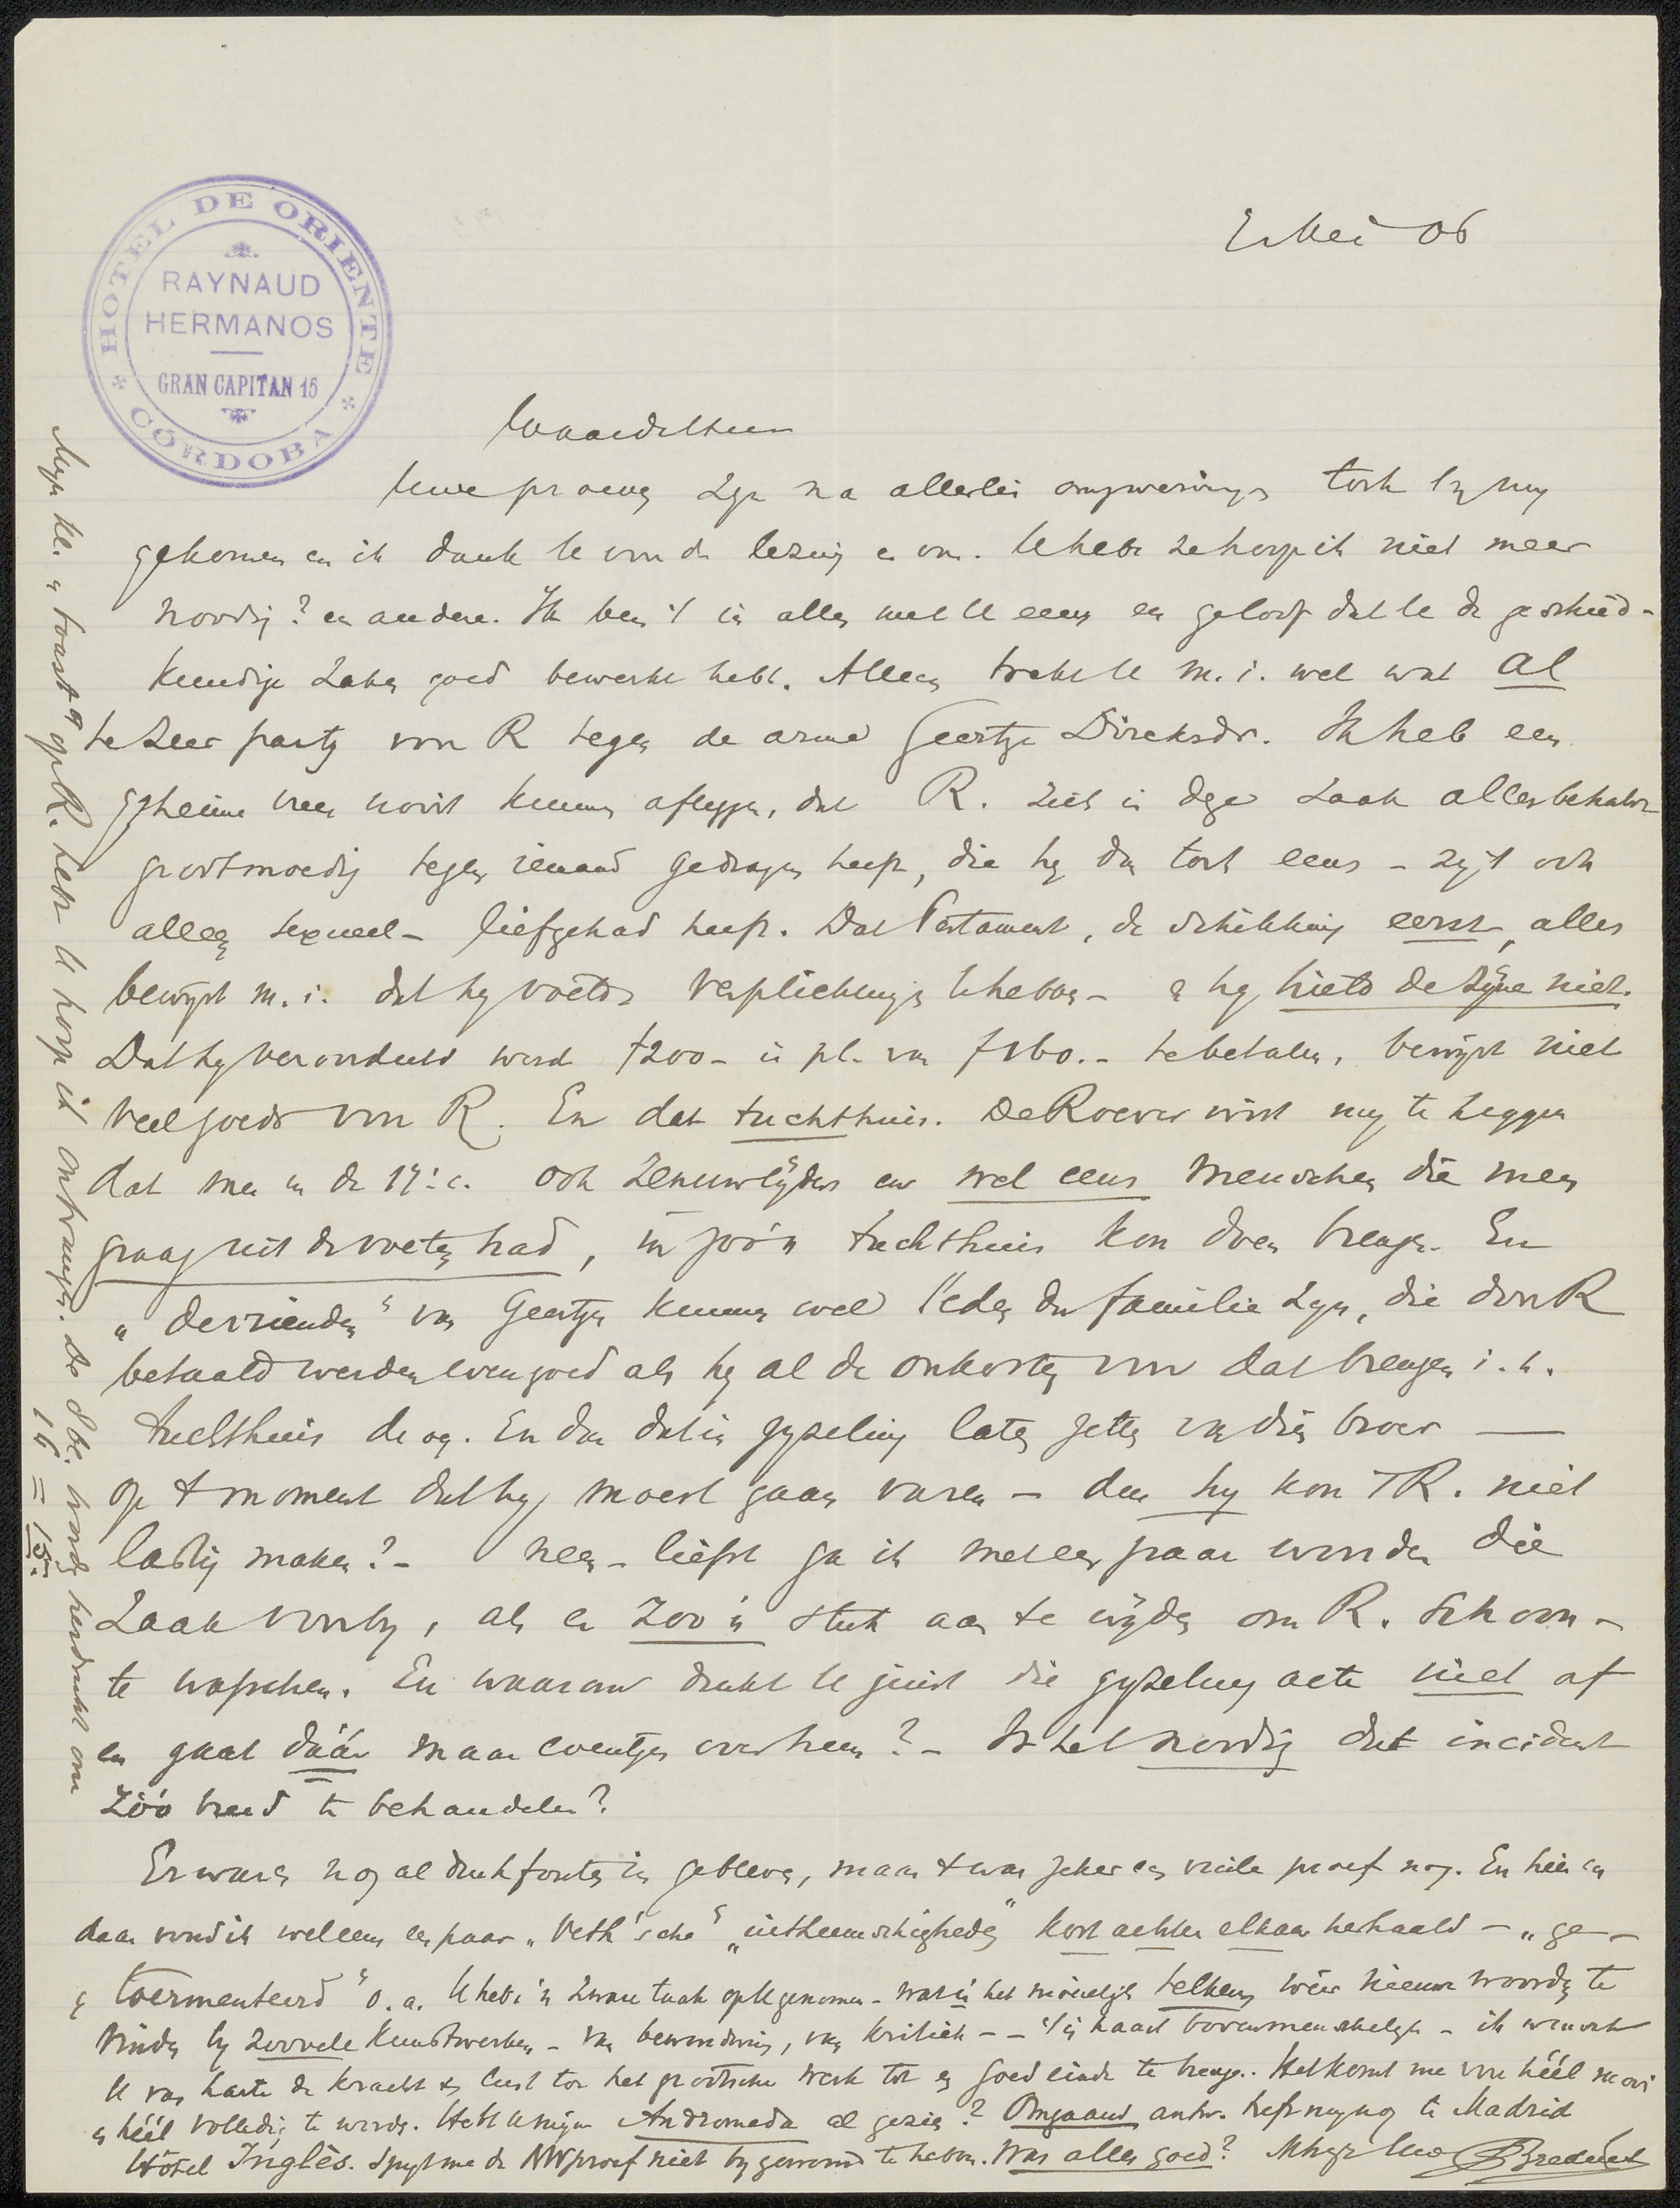 HOTEL DE ORIENTE
RAYNAUD
HERMANOS
GRAN CAPITAN 15
CÓRDOBA
2 Mei 06
Waarde Heer
Uwe proeven zyn na allerlei omzwervingen toch by my
gekomen en ik dank U voor de lezing er van. U hebt ze hoop ik niet meer
noodig? en andere. Ik ben 't in alles met U eens en geloof dat U de geschied-
kundige zaken goed bewerkt hebt. Alleen trekt U m.i. wel wat al
te zeer party voor R tegen de arme Geertje Dircksdr. Ik heb een
geheime vrees nooit kunnen afleggen, dat R. zich in deze zaak allesbehalve
grootmoedig tegen iemand gedragen heeft, die hy dan toch eens - zy 't ook
alleen sexueel - liefgehad heeft. Dat Testament, de schikking eerst, alles
bewyst m.i. dat hy voelde verplichtingen te hebben - en hy hield de zyne niet.
Dat hy veroordeeld werd ƒ200 - in pl. van ƒ160.- te betalen, bewyst niet
veel goeds voor R. En dat tuchthuis. De Roever wist my te zeggen
dat men in de 17e c. ook zenuwlyders en wel eens menschen die men
graag uit de voeten had, in zoo'n tuchthuis kon doen brengen. En
„de vrienden" van Geertje kunnen wel leden der familie zyn, die door R
betaald werden evengoed als hy al de onkosten voor dat brengen i. h.
tuchthuis droeg. En dan dat in gyzeling laten zetten van dien broer —
op 't moment dat hy moest gaan varen - dan hy kon R. niet
lastig maken? - Neen - liefst ga ik met een paar woorden die
zaak voorby, als er zoo'n stuk aan te wyden om R. schoon -
te wasschen. En waarom drukt U juist die gyzeling acte niet af
en gaat dáár maar eventjes over heen? - Is het noodig dat incident
zóó breed te behandelen?
Er waren nog al drukfouten in gebleven, maar 't was zeker een vuile proef nog. En hier en
daar vond ik wel eens een paar „Veth'sche" „uitheemschigheden" kort achter elkaar herhaald - „ge-
toermenteerd" o.a. U hebt 'n zware taak op U genomen - wat is het moeielyk telkens weer nieuwe woorden te
vinden by zoovele kunstwerken - van bewondering, van kritiek - - 't is haast bovenmenschelyk - ik wensch
U van harte de kracht en lust toe het grootsche werk tot een goed einde te brengen. Het komt me voor héél mooi
en héél volledig te worden. Hebt U myn Andromeda al gezien? Omgaand antw. treft my nog te Madrid
Hôtel Inglès. Spyt me de NWproef niet bygewoond te hebben. Was alles goed? Uw ABredius
Myn kl. op R. hebt U hoop ik ontvangen. De wordt herdrukt om
16 = 15.